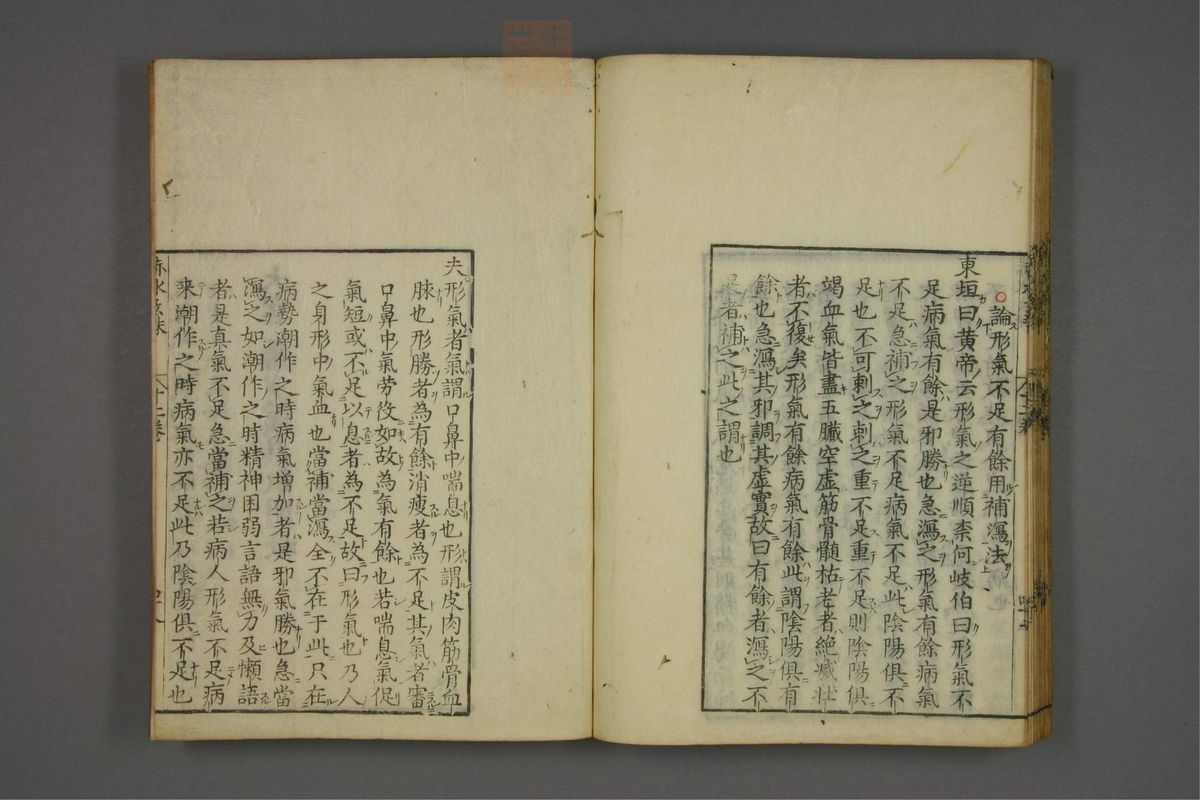 論形氣不足有餘用補瀉法
東垣曰黃帝云形氣之逆順柰何岐伯曰形氣不
足病氣有餘是邪勝也急瀉之形氣有餘病氣
不足急補之形氣不足病氣不足此陰陽俱不
足也不可刺之刺之重不足重不足則陰陽俱
竭血氣皆盡五臟空虛筋骨髓枯老者絕滅壯
者不復矣形氣有餘病氣有餘此謂陰陽俱有
餘也急瀉其邪調其虛實故曰有餘者瀉之不
足者補之此之謂也
夫形氣者氣謂口鼻中喘息也形謂皮肉筋骨血
脉也形勝者為有餘消瘦者為不足其氣者審
口鼻中氣勞役如故為氣有餘也若喘息氣促
氣短或不足以息者為不足故曰形氣也乃人
之身形中氣血也當補當瀉全不在于此只在
病勢潮作之時病氣增加者是邪氣勝也急當
瀉之如潮作之時精神困弱言語無力及懶語
者是真氣不足急當補之若病人形氣不足病
来潮作之時病氣亦不足此乃陰陽俱不足也
赤水玄珠
十二卷